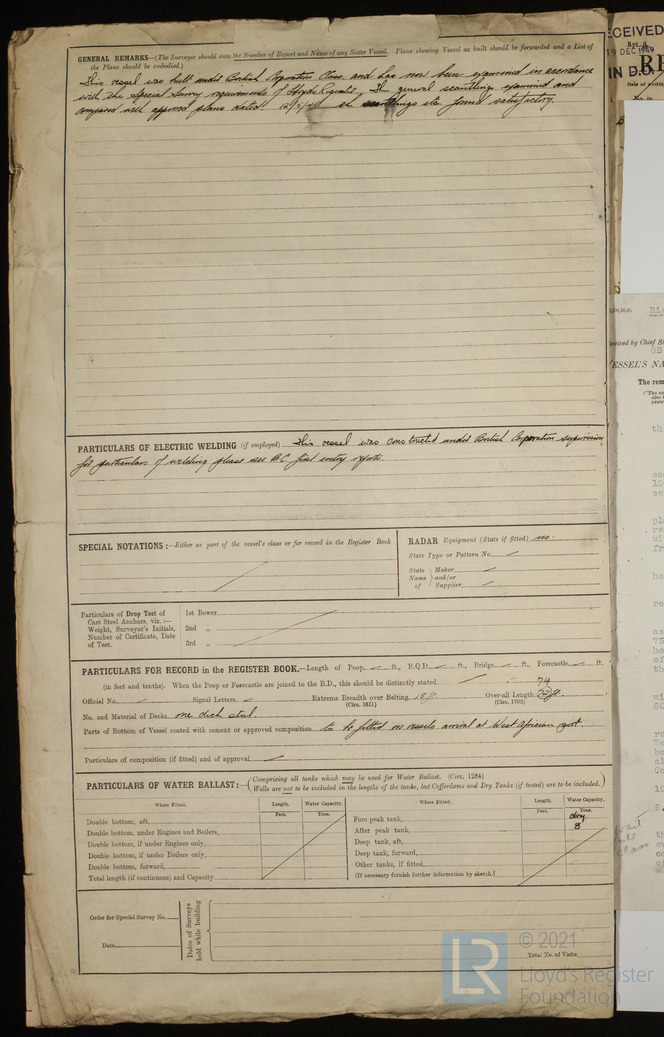 GENERAL REMARKS—(The Surveyor should state the Number of Report and Name of any Sister Vessel. Plans showing Vessel as built should be forwarded and a List of
the Plans should be embodied.)
This vessel was built under British Corporation Class and has now been examined in accordance
with the Special Survey requirements of Lloyds Register. The general scantlings examined and
compared with approved plans dated the scantlings etc found satisfactory.
PARTICULARS OF ELECTRIC WELDING (if employed) This vessel was constructed under British Corporation supervision
for particulars of welding please see B.C. first entry reports.
SPECIAL NOTATIONS:—Either as part of the vessel's class or for record in the Register Book
RADAR Equipment (State if fitted) no.
State Type or Pattern No.
State Name of } Maker and/or Supplier
Particulars of Drop Test of
Cast Steel Anchors, viz. :—
Weight, Surveyor's Initials,
Number of Certificate, Date
of Test.
1st Bower
2nd „
3rd „
PARTICULARS FOR RECORD in the REGISTER BOOK.—Length of Poop ft., R.Q.D. ft., Bridge ft., Forecastle ft.
(in feet and tenths). When the Poop or Forecastle are joined to the B.D., this should be distinctly stated
74
Official No. Signal Letters Extreme Breadth over Belting Over-all Length ft.
(Circ. 1611) (Circ. 1703)
No. and Material of Decks one deck steel.
Parts of Bottom of Vessel coated with cement or approved composition to be fitted on vessels arrival at West African port
Particulars of composition (if fitted) and of approval
PARTICULARS OF WATER BALLAST:—(Comprising all tanks which may be used for Water Ballast. (Circ. 1284)
Wells are not to be included in the lengths of the tanks, but Cofferdams and Dry Tanks (if tested) are to be included.)
Where Fitted. Length. Water Capacity. Where Fitted. Length. Water Capacity.
Feet. Tons. Feet. Tons.
Double bottom, aft, Fore peak tank, dry
Double bottom, under Engines and Boilers, After peak tank, 8
Double bottom, if under Engines only, Deep tank, aft,
Double bottom, if under Boilers only, Deep tank, forward,
Double bottom, forward, Other tanks, if fitted,
Total length (if continuous) and Capacity (If necessary furnish further information by sketch.)
Order for Special Survey No.
Date
Dates of Surveys
held while building
Total No. of Visits
© 2021
LR
Lloyd's Register
Foundation